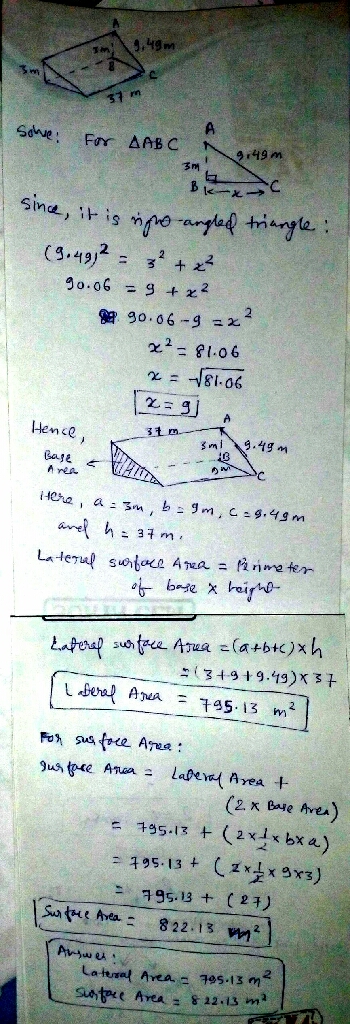 A
3m
9.49m
3m
B
C
37 m
Solve: For ΔABC
A
3m
9.49m
B
x
C
Since, it is right-angled triangle:
(9.49)² = 3² + x²
90.06 = 9 + x²
90.06 - 9 = x²
x² = 81.06
x = √81.06
x = 9
Hence,
37 m
A
3m
9.49m
B
9m
C
Base Area
Here, a = 3m, b = 9m, c = 9.49m
and h = 37 m.
Lateral surface Area = Perimeter
of base x height
Lateral surface Area = (a+b+c)xh
= (3+9+9.49)x37
Lateral Area = 795.13 m²
For surface Area:
Surface Area = Lateral Area +
(2 x Base Area)
= 795.13 + (2x½xbxa)
= 795.13 + (2x½x9x3)
= 795.13 + (27)
Surface Area = 822.13 m²
Answer:
Lateral Area = 795.13 m²
Surface Area = 822.13 m²